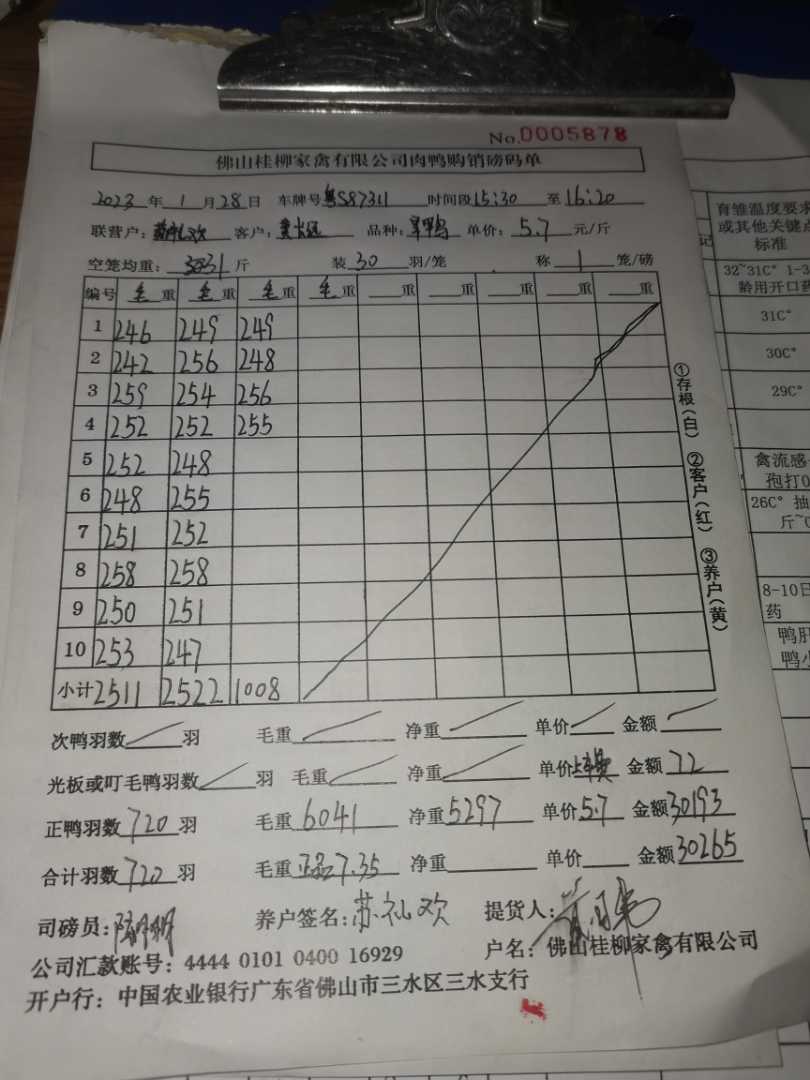 No.0005878
佛山桂柳家禽有限公司肉鸭购销磅码单
2023 年 1 月 28 日 车牌号 粤S87311 时间段 15:30 至 16:20
联营户: 苏礼欢 客户: 品种: 单价: 5.7 元/斤
空笼均重: 斤 装 30 羽/笼 称 1 笼/磅
编号 毛重 毛重 毛重 毛重 重 重 重 重 重
1 246 249 249
2 242 256 248
3 259 254 256
4 252 252 255
5 252 248
6 248 255
7 251 252
8 258 258
9 250 251
10 253 247
小计 2511 2522 1008
①存根(白) ②客户(红) ③养户(黄)
次鸭羽数 羽 毛重 净重 单价 金额
光板或叮毛鸭羽数 羽 毛重 净重 单价 金额 72
正鸭羽数 720 羽 毛重 6041 净重 5297 单价 5.7 金额 30193
合计羽数 720 羽 毛重 7.35 净重 单价 金额 30265
司磅员: 养户签名: 苏礼欢 提货人:
公司汇款账号: 4444 0101 0400 16929 户名: 佛山桂柳家禽有限公司
开户行: 中国农业银行广东省佛山市三水区三水支行
育雏温度要求
或其他关键点
标准
记
32~31C° 1-3
龄用开口药
31C°
30C°
29C°
禽流感
孢打0
26C° 抽
斤~
8-10日
药
鸭肝
鸭小